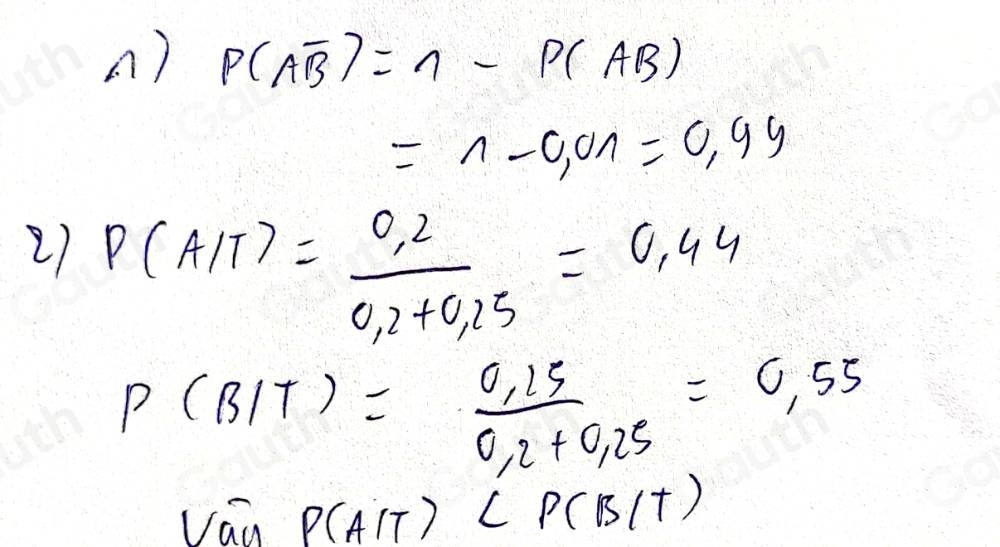 1) P(AB̅) = 1 - P(AB)
= 1 - 0,01 = 0,99
2) P(A/T) = 0,2 / (0,2 + 0,25) = 0,44
P(B/T) = 0,25 / (0,2 + 0,25) = 0,55
Vậy P(A/T) < P(B/T)